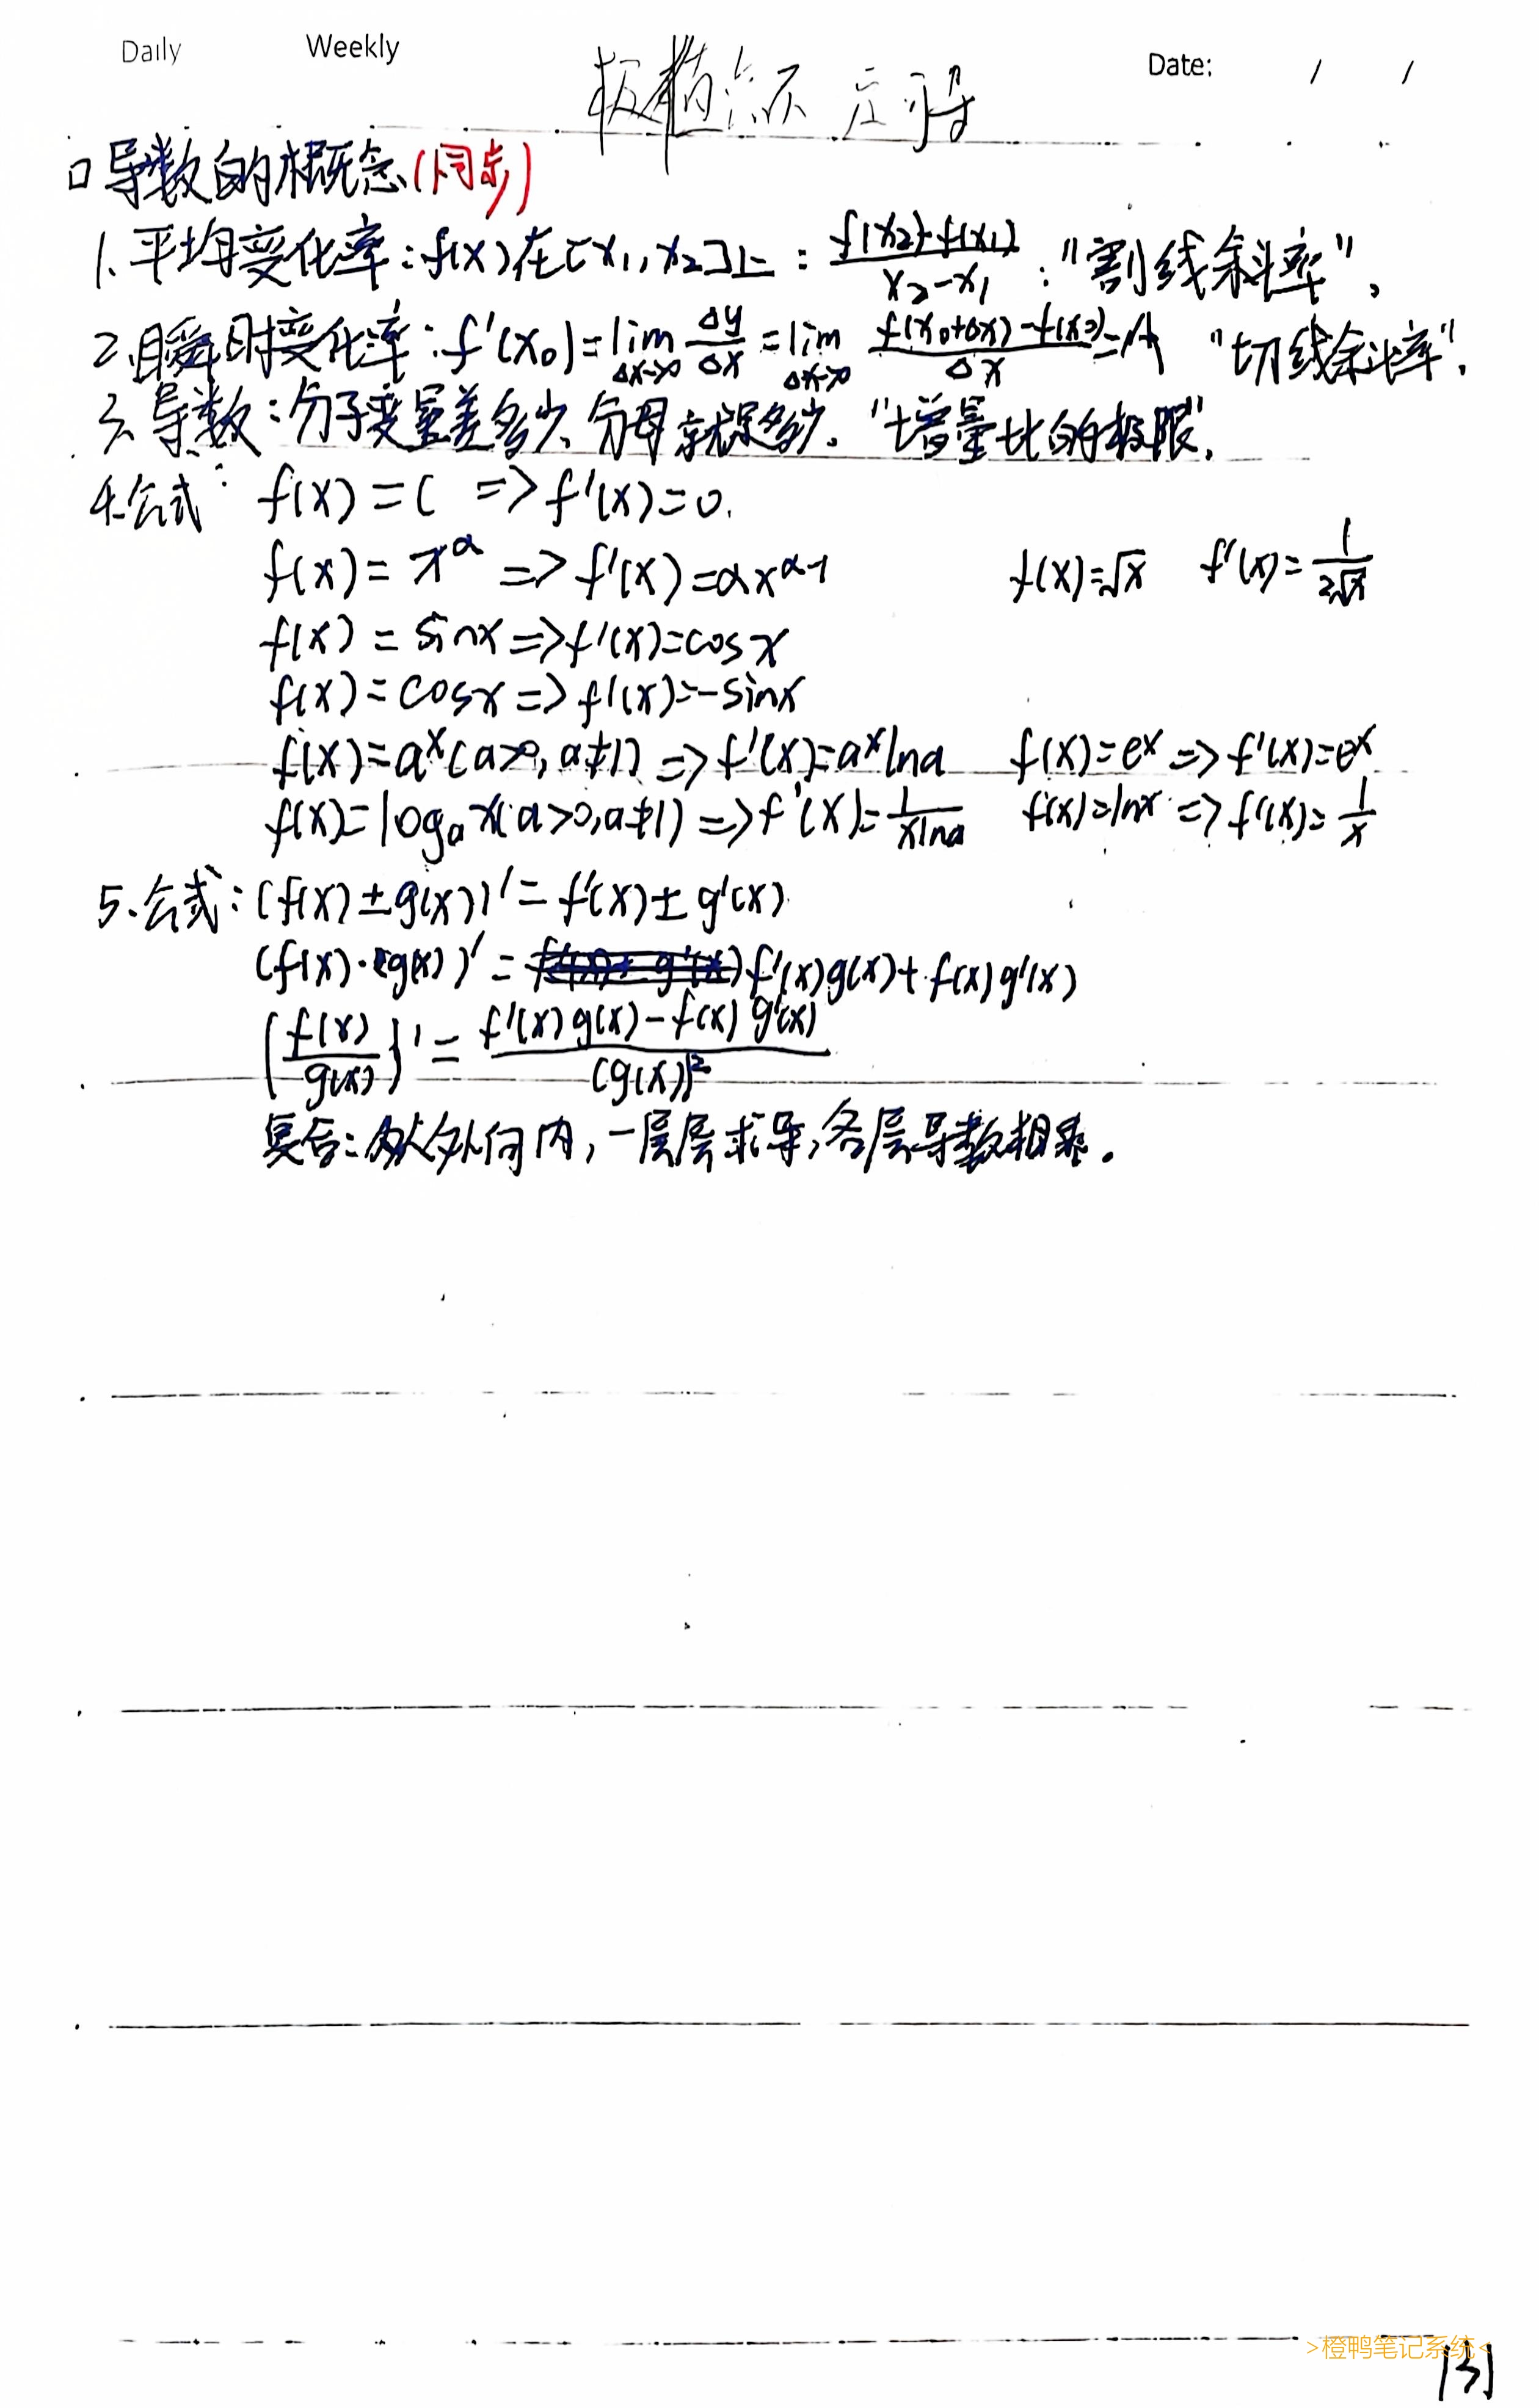 Daily Weekly Date: / /
极值点不
导数的概念(同步)
1.平均变化率:f(x)在[x₁,x₂]上:(f(x₂)-f(x₁))/(x₂-x₁):"割线斜率".
2.瞬时变化率:f'(x₀)=lim Δx→0 Δy/Δx=lim Δx→0 (f(x₀+Δx)-f(x₀))/Δx=A "切线斜率".
3.导数:分子变量差多少,分母就是多少."增量比的极限".
4.公式: f(x)=C => f'(x)=0.
f(x)=x^α => f'(x)=αx^(α-1) f(x)=√x f'(x)=1/(2√x)
f(x)=sinx=>f'(x)=cosx
f(x)=cosx=>f'(x)=-sinx
f(x)=a^x(a>0,a≠1)=>f'(x)=a^x lna f(x)=e^x=>f'(x)=e^x
f(x)=logₐx(a>0,a≠1)=>f'(x)=1/(xlna) f(x)=lnx=>f'(x)=1/x
5.公式:(f(x)±g(x))'=f'(x)±g'(x).
(f(x)·g(x))'=f'(x)g(x)+f(x)g'(x)
(f(x)/g(x))'=(f'(x)g(x)-f(x)g'(x))/(g(x))²
复合:从外向内,一层层求导,各层导数相乘.
>橙鸭笔记系统<